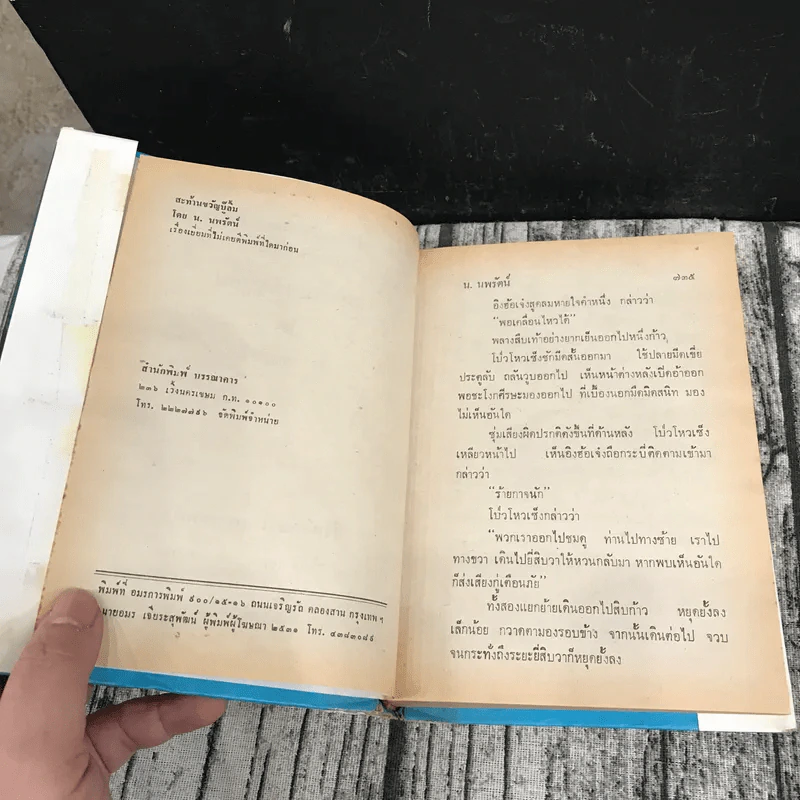 สะท้านขวัญบู๊ลิ้ม
โดย น. นพรัตน์
เรื่องเยี่ยมที่ไม่เคยตีพิมพ์ที่ใดมาก่อน
สำนักพิมพ์ บรรณาคาร
๒๓๖ เวิ้งนครเขษม ก.ท. ๑๐๑๐๐
โทร. ๒๒๒๗๗๙๖ จัดพิมพ์จำหน่าย
พิมพ์ที่ อมรการพิมพ์ ๙๐๐/๑๕-๑๖ ถนนเจริญรัถ คลองสาน กรุงเทพ ฯ
นายอมร เจียระสุพัฒน์ ผู้พิมพ์ผู้โฆษณา ๒๕๓๑ โทร. ๔๓๘๓๐๘๖
น. นพรัตน์ ๗๓๕
อิงฮ้อเจ๋งสูดลมหายใจคำหนึ่ง กล่าวว่า
"พอเคลื่อนไหวได้"
พลางสืบเท้าอย่างยากเย็นออกไปหนึ่งก้าว
โป้วโหวเซ็งชักมีดสั้นออกมา ใช้ปลายมีดเขี่ย
ประตูลับ ถลันวูบออกไป เห็นหน้าต่างหลังเปิดอ้าออก
พอชะโงกศีรษะมองออกไป ที่เบื้องนอกมืดมิดสนิท มอง
ไม่เห็นอันใด
ซุ่มเสียงผิดปรกติดังขึ้นที่ด้านหลัง โป้วโหวเซ็ง
เหลียวหน้าไป เห็นอิงฮ้อเจ๋งถือกระบี่ติดตามเข้ามา
กล่าวว่า
"ร้ายกาจนัก"
โป้วโหวเซ็งกล่าวว่า
"พวกเราออกไปชมดู ท่านไปทางซ้าย เราไป
ทางขวา เดินไปยี่สิบวาให้หวนกลับมา หากพบเห็นอันใด
ก็ส่งเสียงกู่เตือนภัย"
ทั้งสองแยกย้ายเดินออกไปสิบก้าว หยุดยั้งลง
เล็กน้อย กวาดตามองรอบข้าง จากนั้นเดินต่อไป จวบ
จนกระทั่งถึงระยะยี่สิบวาก็หยุดยั้งลง